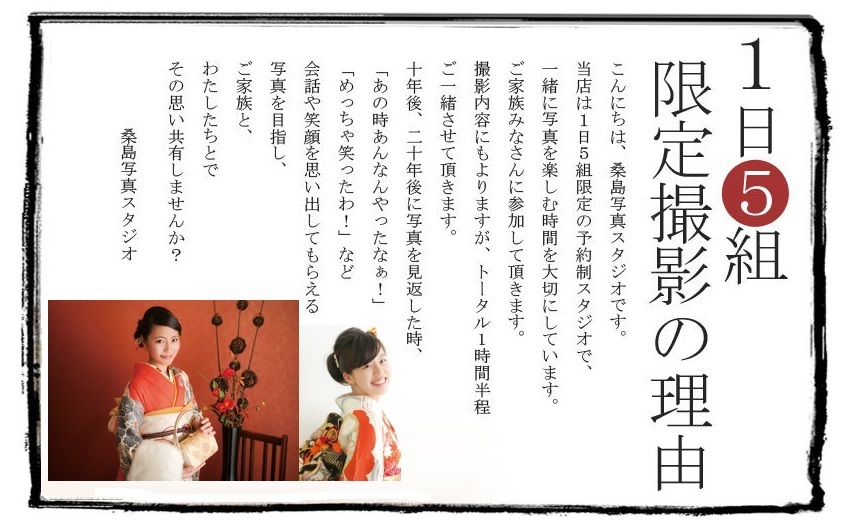 1日5組
限定撮影の理由
こんにちは、桑島写真スタジオです。
当店は1日5組限定の予約制スタジオで、
一緒に写真を楽しむ時間を大切にしています。
ご家族みなさんに参加して頂きます。
撮影内容にもよりますが、トータル1時間半程
ご一緒させて頂きます。
十年後、二十年後に写真を見返した時、
「あの時あんなんやったなぁ！」
「めっちゃ笑ったわ！」など
会話や笑顔を思い出してもらえる
写真を目指し、
ご家族と、
わたしたちとで
その思い共有しませんか？
桑島写真スタジオ